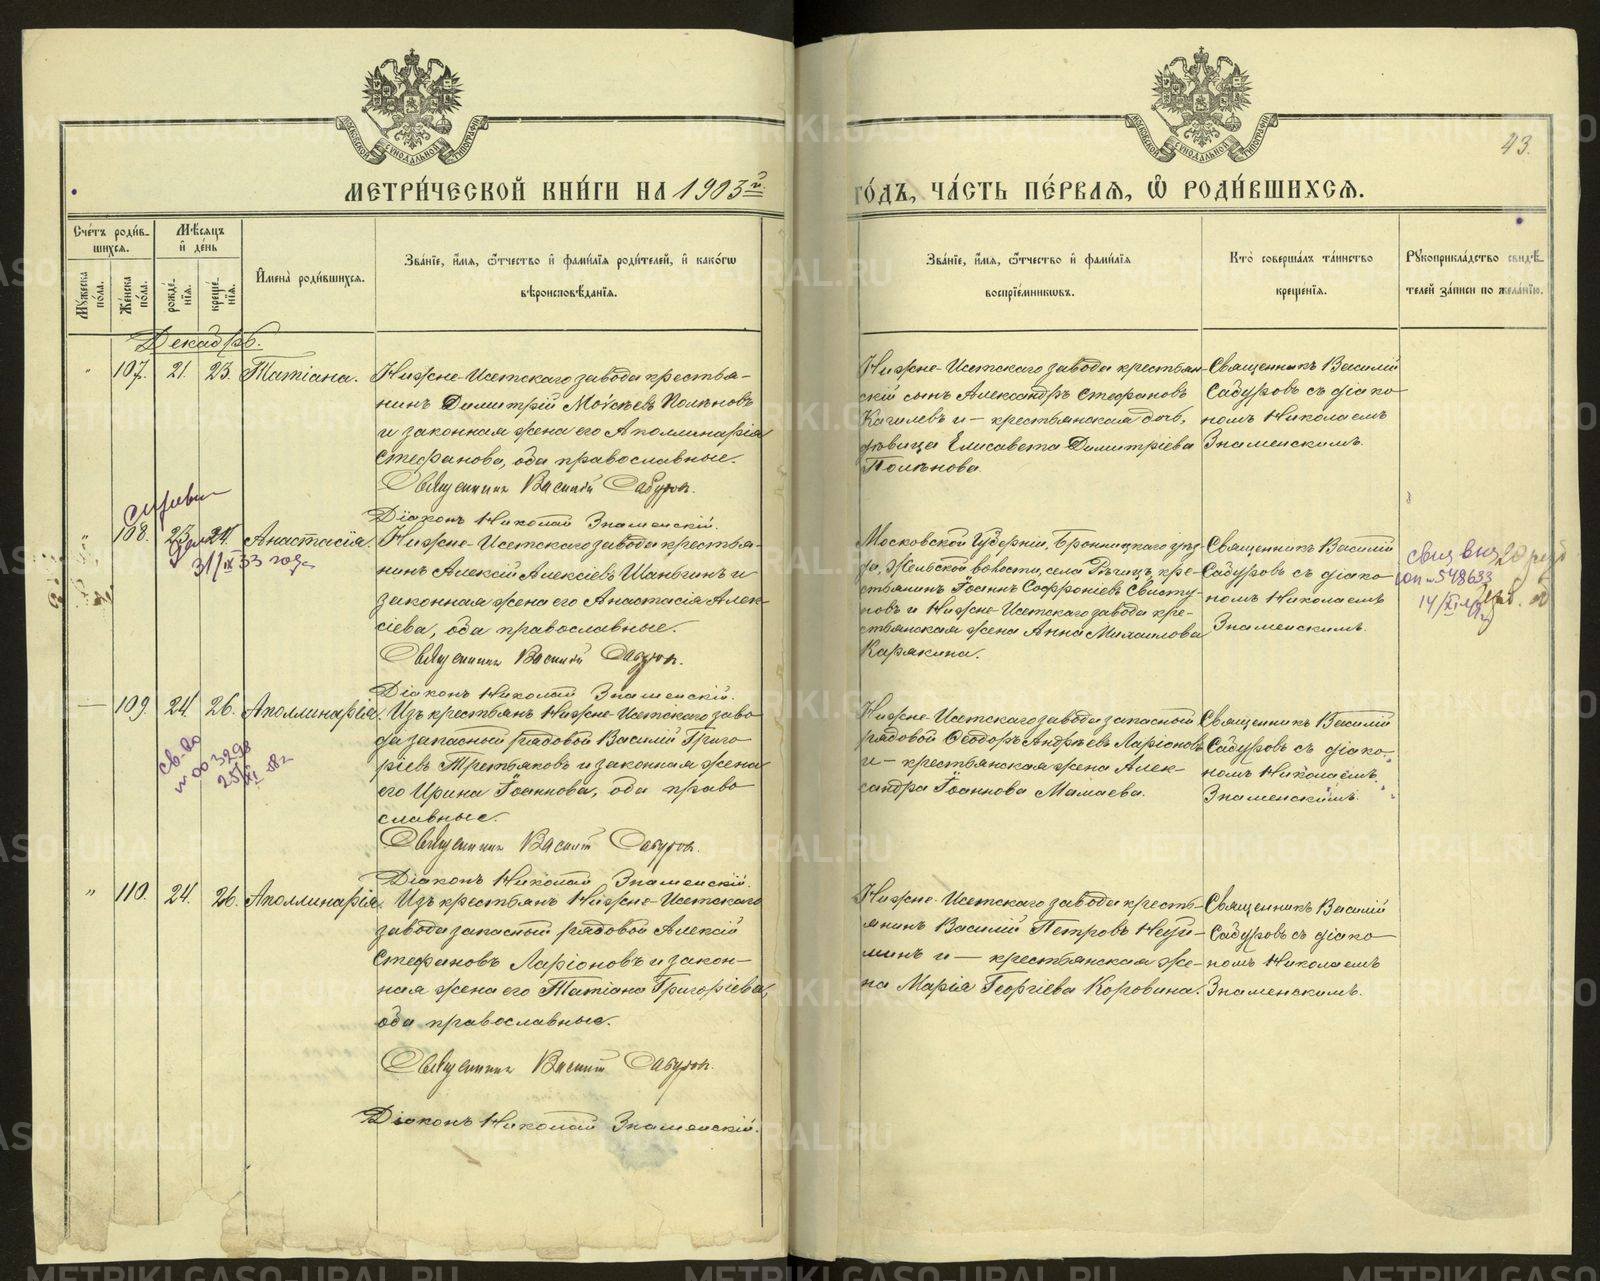 43.
МЕТРИ́ЧЕСКОЙ КНИ́ГИ НА 1903й.
ГО́ДЪ, ЧА́СТЬ ПЕ́РВАЯ, Ѽ РОДИ́ВШИХСЯ.
Сче́тъ роди́в-
шихся.
Мѣ́сяцъ
и́ де́нь
Му́жеска по́ла.
Же́нска по́ла.
рожде́нїя.
креще́нїя.
И҆мена̀ роди́вшихся.
Зва́нїе, и҆́мя, ѻ҆́тчество и҆ фами́лїя роди́телей, и҆ како́гѡ
вѣроисповѣ́данїя.
Зва́нїе, и҆́мя, ѻ҆́тчество и҆ фами́лїя
воспрїе́мникѡвъ.
Кто̀ соверша́лъ та́инство
креще́нїя.
Рꙋкоприкла́дство свидѣ́-
телей за́писи по жела́нїю.
Декабрь.
" 107. 21. 23. Татіана.
Нижне-Исетскаго завода крестья-
нинъ Димитрій Моѵсеевъ Полѣновъ
и законная жена его Аполлинарія
Стефанова, оба православные.
Священникъ Василій Сабуровъ.
Діаконъ Николай Знаменскій.
Нижне-Исетскаго завода крестьян-
скій сынъ Александръ Стефановъ
Качилевъ и — крестьянская дочь,
дѣвица Елисавета Димитріева
Полѣнова.
Священникъ Василій
Сабуровъ съ діако-
номъ Николаемъ
Знаменскимъ.
108. 23. 24. Анастасія.
31/IX 33 года
Нижне-Исетскаго завода крестья-
нинъ Алексій Алексіевъ Шаньгинъ и
законная жена его Анастасія Алек-
сіева, оба православные.
Священникъ Василій Сабуровъ.
Діаконъ Николай Знаменскій.
Московской Губерніи, Бронницкаго уѣз-
да, Жельской волости, села Рѣчицъ, кре-
стьянинъ Іоаннъ Софроніевъ Свисту-
новъ и Нижне-Исетскаго завода кре-
стьянская жена Анна Михаилова
Карякина.
Священникъ Василій
Сабуровъ съ діако-
номъ Николаемъ
Знаменскимъ.
548633
— 109. 24. 26. Аполлинарія.
Св-во
№ 003298
25/XI 58г
Изъ крестьянъ Нижне-Исетскаго заво-
да запасный рядовой Василій Григо-
ріевъ Третьяковъ и законная жена
его Ирина Іоаннова, оба право-
славные.
Священникъ Василій Сабуровъ.
Діаконъ Николай Знаменскій.
Нижне-Исетскаго завода запасный
рядовой Ѳеодоръ Андреевъ Ларіоновъ
и — крестьянская жена Алек-
сандра Іоаннова Мамаева.
Священникъ Василій
Сабуровъ съ діако-
номъ Николаемъ
Знаменскимъ.
" 110. 24. 26. Аполлинарія.
Изъ крестьянъ Нижне-Исетскаго
завода запасный рядовой Алексій
Стефановъ Ларіоновъ и закон-
ная жена его Татіана Григоріева,
оба православные.
Священникъ Василій Сабуровъ.
Діаконъ Николай Знаменскій.
Нижне-Исетскаго завода кресть-
янинъ Василій Петровъ Неуй-
минъ и — крестьянская же-
на Марія Георгіева Коровина.
Священникъ Василій
Сабуровъ съ діако-
номъ Николаемъ
Знаменскимъ.
METRIKI.GASO-URAL.RU